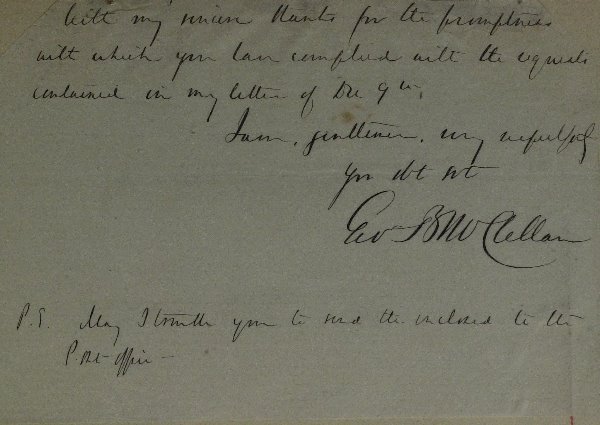 with my sincere thanks for the promptness
with which you have complied with the requests
contained in my letter of Dec 9th,
I am, gentlemen, very respectfully
yr obt svt
Geo B McClellan
P.S. May I trouble you to send the enclosed to the
Post office —